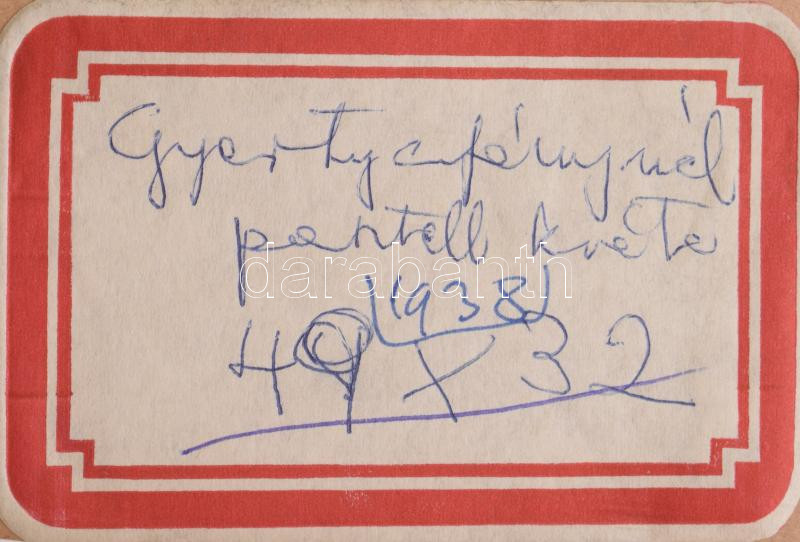 Gyertyafénynél
pasztell kréta
1938
49 x 32
darabanth